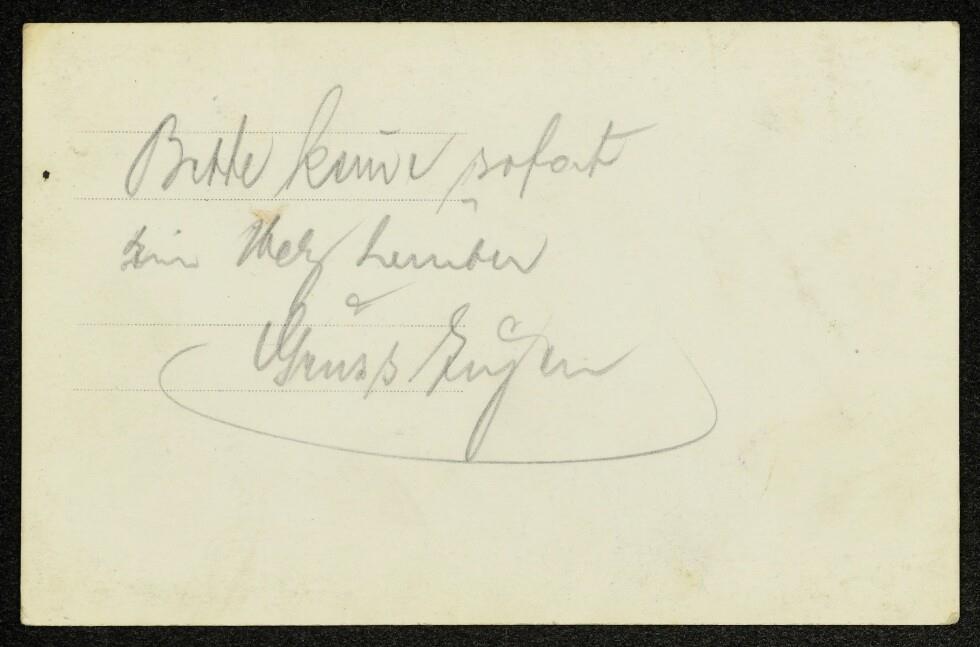 Bitte kom̄e sofort
zum herüber
Gruss Eugen